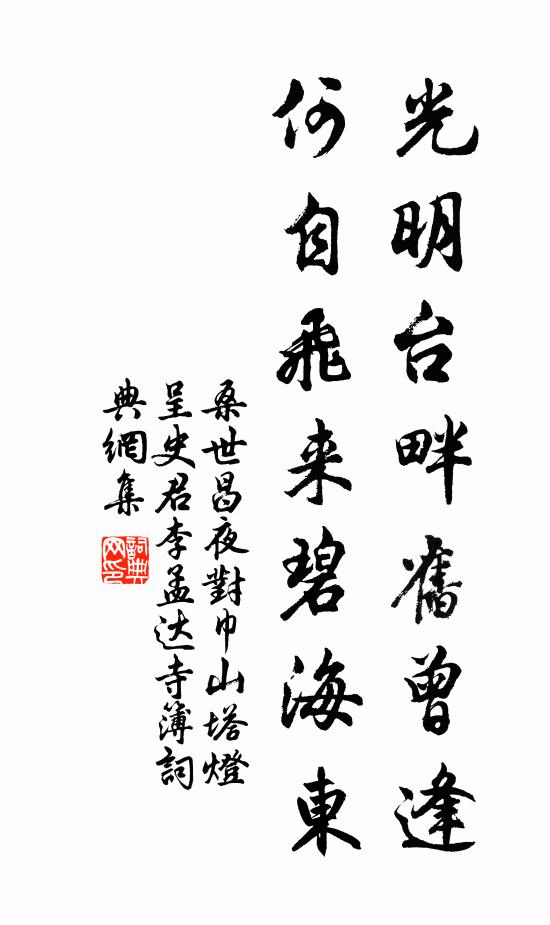 光明台畔舊曾逢
何自飛来碧海東
桑世昌夜對巾山塔燈
呈史君李孟达寺簿詞
典網集
詞典网印